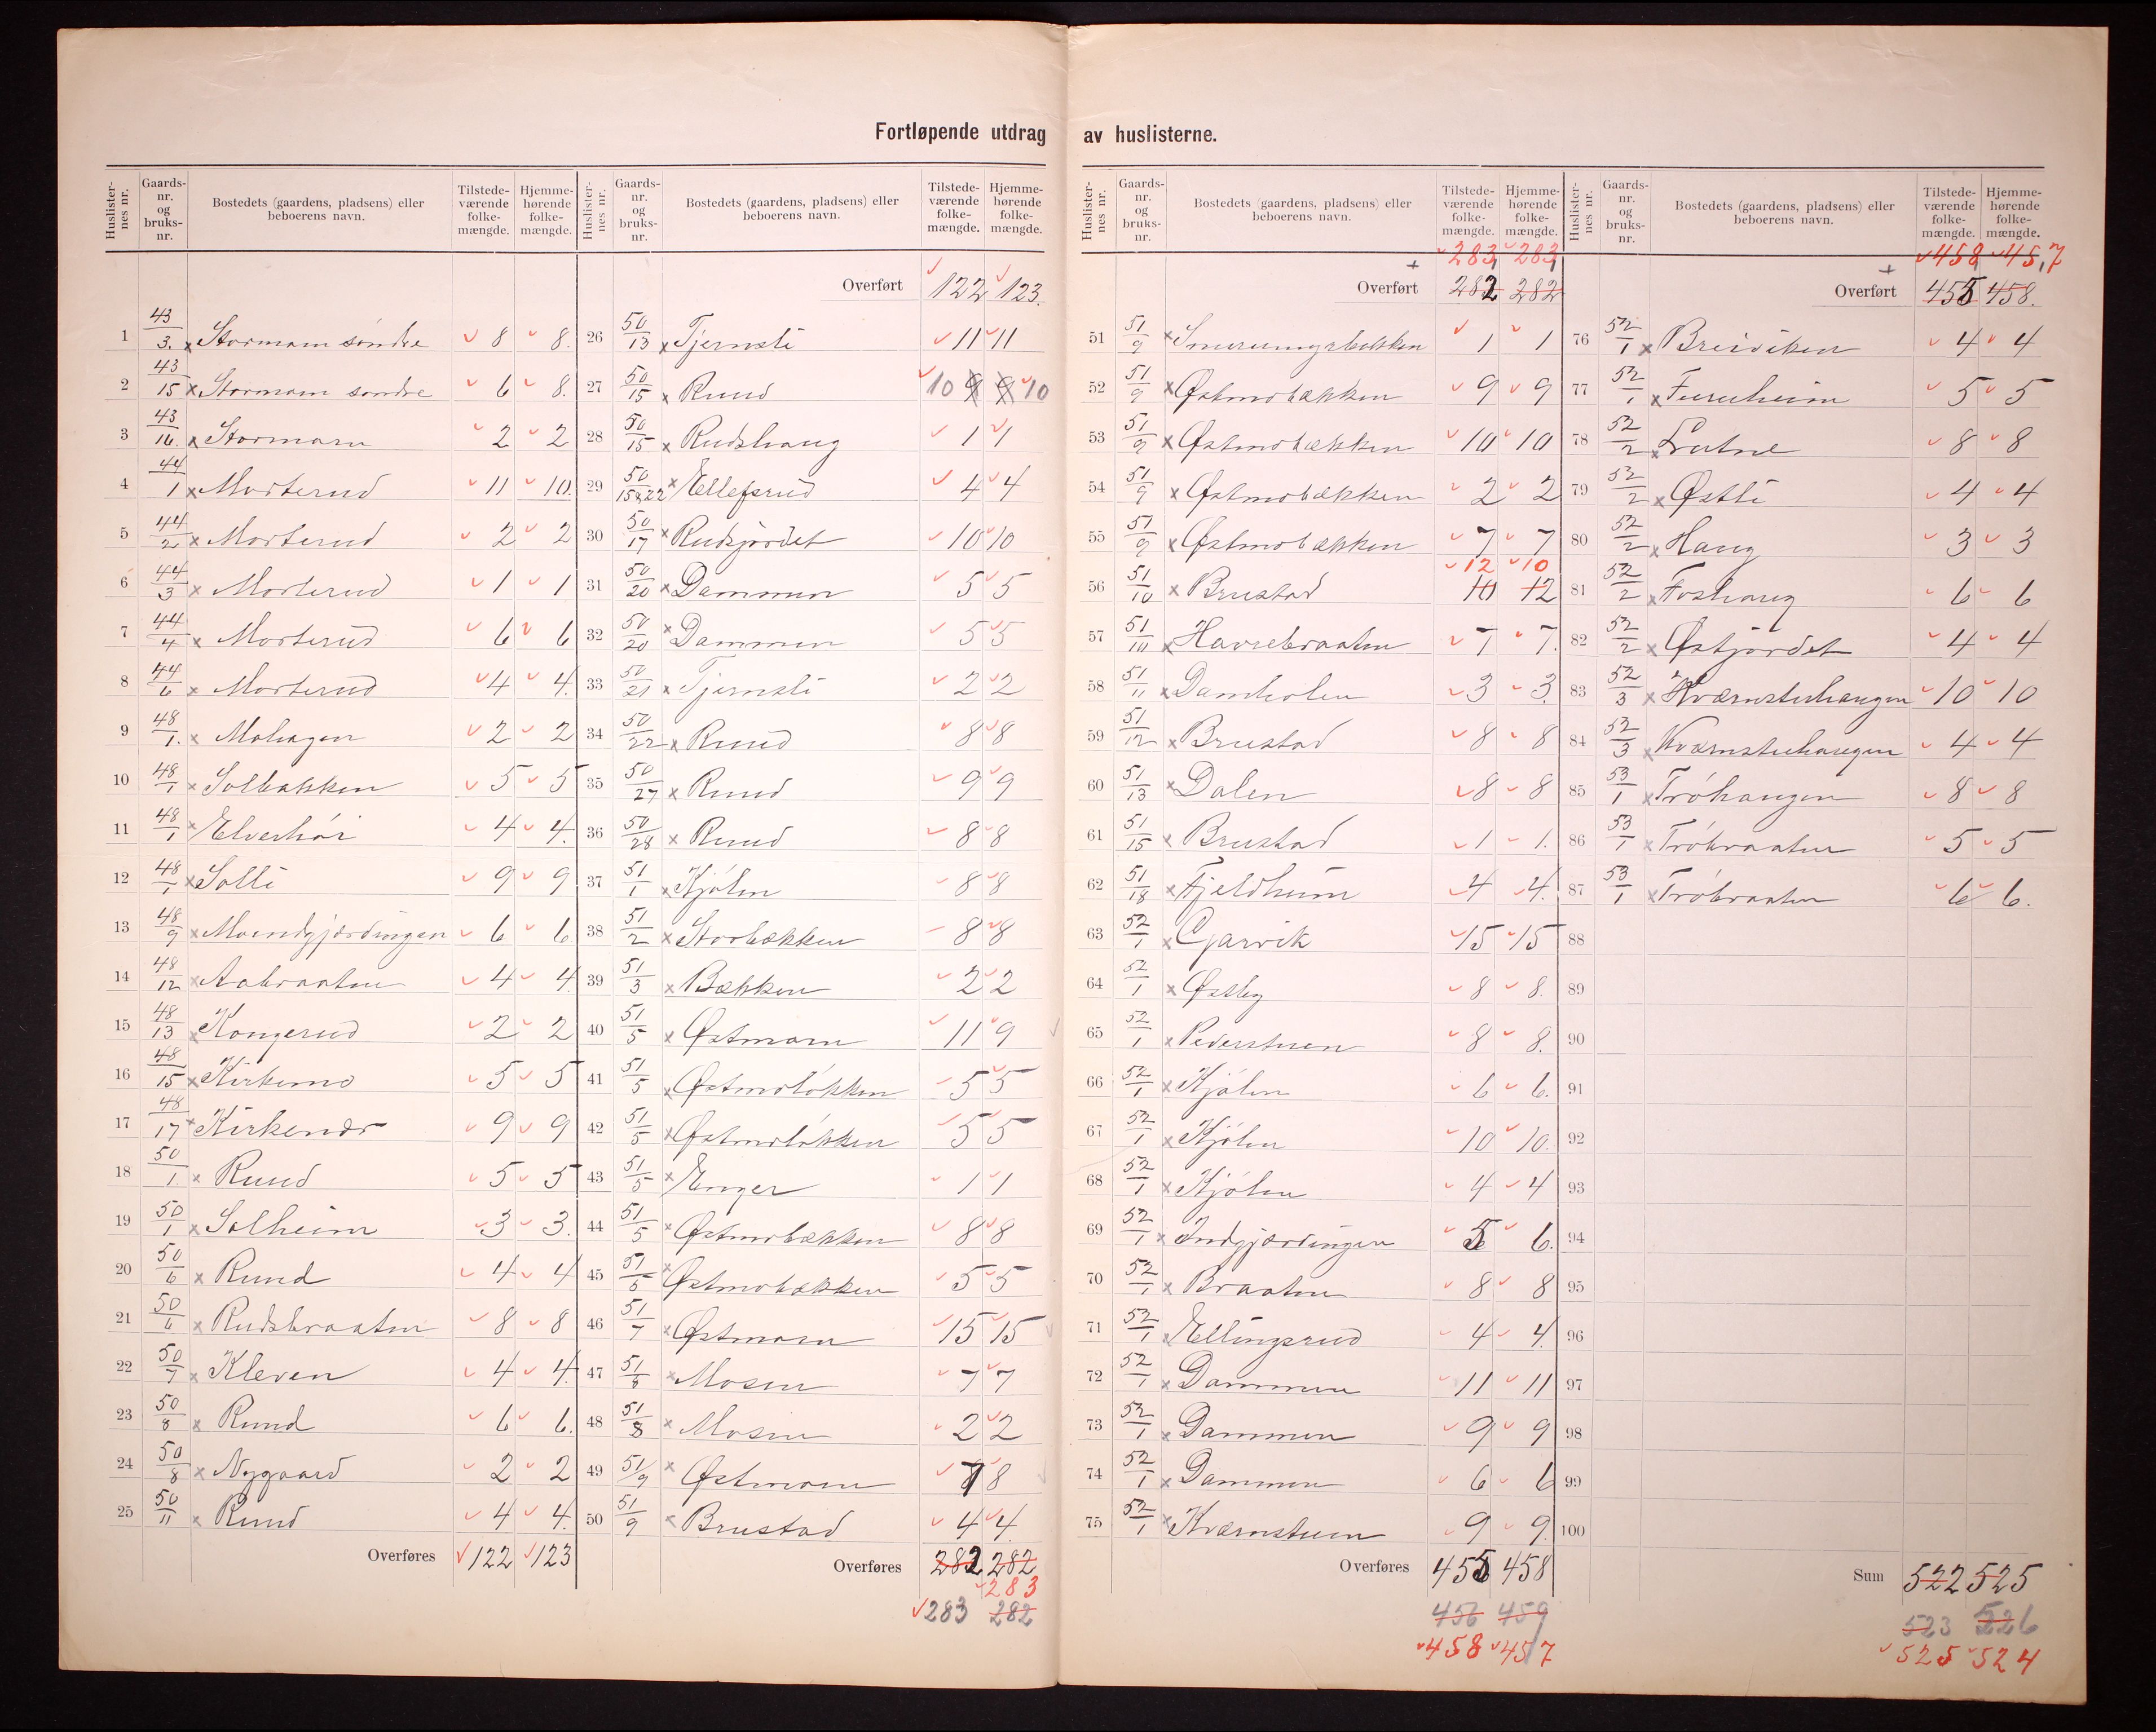 Fortløpende utdrag av huslisterne.
Huslister-nes nr. Gaards-nr. og bruks-nr. Bostedets (gaardens, pladsens) eller beboerens navn. Tilstede-værende folke-mængde. Hjemme-hørende folke-mængde.
1 43/3. x Stormoen søndre 8 8.
2 43/15 x Stormoen søndre 6 8.
3 43/16. x Stormoen 2 2
4 44/1 x Morterud 11 10.
5 44/2 x Morterud 2 2
6 44/3 x Morterud 1 1
7 44/4 x Morterud 6 6
8 44/6 x Morterud 4 4.
9 48/1. x Mohagen 2 2
10 48/1 x Solbakken 5 5
11 48/1 x Elverhøi 4 4.
12 48/1 x Solli 9 9
13 48/9 x Moendgjærdingen 6 6
14 48/12 x Aabraaten 4 4
15 48/13 x Kongerud 2 2
16 48/15 x Kirkemo 5 5
17 48/17 x Kirkenær 9 9
18 50/1 x Ruud 5 5
19 50/1 x Solheim 3 3.
20 50/6 x Ruud 4 4
21 50/6 x Rudsbraaten 8 8
22 50/7 x Kleven 4 4
23 50/8 x Ruud 6 6.
24 50/8 x Nygaard 2 2
25 50/11 x Ruud 4 4.
Overføres 122 123
Huslister-nes nr. Gaards-nr. og bruks-nr. Bostedets (gaardens, pladsens) eller beboerens navn. Tilstede-værende folke-mængde. Hjemme-hørende folke-mængde.
Overført 122 123.
26 50/13 x Tjernsli 11 11
27 50/15 x Ruud 10 8 9 10
28 50/15 x Rudshaug 1 1
29 50/15&22 x Ellefsrud 4 4
30 50/17 x Rudsjordet 10 10
31 50/20 x Dammen 5 5
32 50/20 x Dammen 5 5
33 50/21 x Tjernsli 2 2
34 50/22 x Ruud 8 8
35 50/27 x Ruud 9 9
36 50/28 x Ruud 8 8
37 51/1 x Kjølen 8 8
38 51/2 x Storbækken 8 8
39 51/3 x Bækken 2 2
40 51/5 x Østmoen 11 9
41 51/5 x Østmoløkken 5 5
42 51/5 x Østmoløkken 5 5
43 51/5 x Enger 1 1
44 51/5 x Østmobækken 8 8
45 51/5 x Østmobækken 5 5
46 51/7 x Østmoen 15 15
47 51/8 x Mosen 7 7
48 51/8 x Mosen 2 2
49 51/9 x Østmoen 7 8
50 51/9 x Brustad 4 4.
Overføres 282 282
283
283 282
Huslister-nes nr. Gaards-nr. og bruks-nr. Bostedets (gaardens, pladsens) eller beboerens navn. Tilstede-værende folke-mængde. Hjemme-hørende folke-mængde.
283 283
Overført 282 282
51 51/9 x 1 1
52 51/9 x Østmobækken 9 9
53 51/9 x Østmobækken 10 10
54 51/9 x Østmobækken 2 2
55 51/9 x Østmobækken 7 7
12 10
56 51/10 x Brustad 10 12
57 51/10 x Havrebraaten 7 7.
58 51/11 x Damholen 3 3.
59 51/12 x Brustad 8 8
60 51/13 x Dalen 8 8
61 51/15 x Brustad 1 1.
62 51/18 x Fjeldheim 4 4.
63 52/1 x Gjarvik 15 15
64 52/1 x Østby 8 8.
65 52/1 x Pederstuen 8 8.
66 52/1 x Kjølen 6 6.
67 52/1 x Kjølen 10 10.
68 52/1 x Kjølen 4 4
69 52/1 x Indgjærdingen 5 6.
70 52/1 x Braaten 8 8
71 52/1 x Ellingsrud 4 4.
72 52/1 x Dammen 11 11
73 52/1 x Dammen 9 9
74 52/1 x Dammen 6 6
75 52/1 x Kværnstuen 9 9.
Overføres 455 458
456 459
458 457
Huslister-nes nr. Gaards-nr. og bruks-nr. Bostedets (gaardens, pladsens) eller beboerens navn. Tilstede-værende folke-mængde. Hjemme-hørende folke-mængde.
458 457
Overført 455 458.
76 52/1 x Breiviken 4 4
77 52/1 x Furuheim 5 5
78 52/2 x Lutne 8 8
79 52/2 x Østli 4 4
80 52/2 x Haug 3 3
81 52/2 x Foshaug 6 6
82 52/2 x Østjordet 4 4
83 52/3 x Kværnstuhaugen 10 10
84 52/3 x Kværnstuhaugen 4 4
85 53/1 x Trøhaugen 8 8
86 53/1 x Trøbraaten 5 5
87 53/1 x Trøbraaten 6 6.
88
89
90
91
92
93
94
95
96
97
98
99
100
Sum 522 525
523 526
525 524